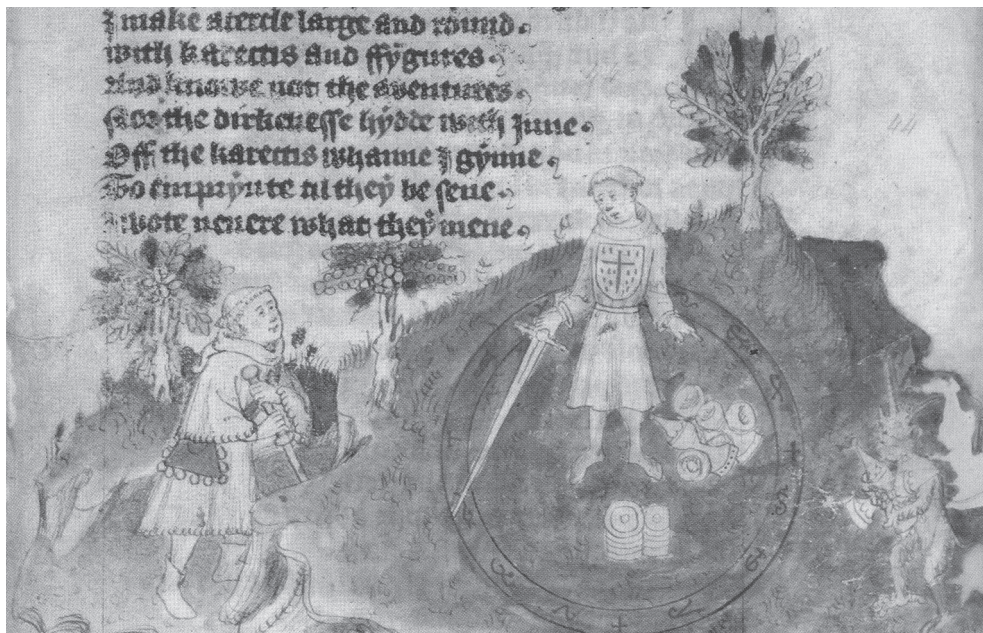 I make a cercle large and round
with karectis and ffygures
And knowe not the aventures
Off the karectis whanne I gynne
To emprynte til they be sene
I wote nevere what they mene
44